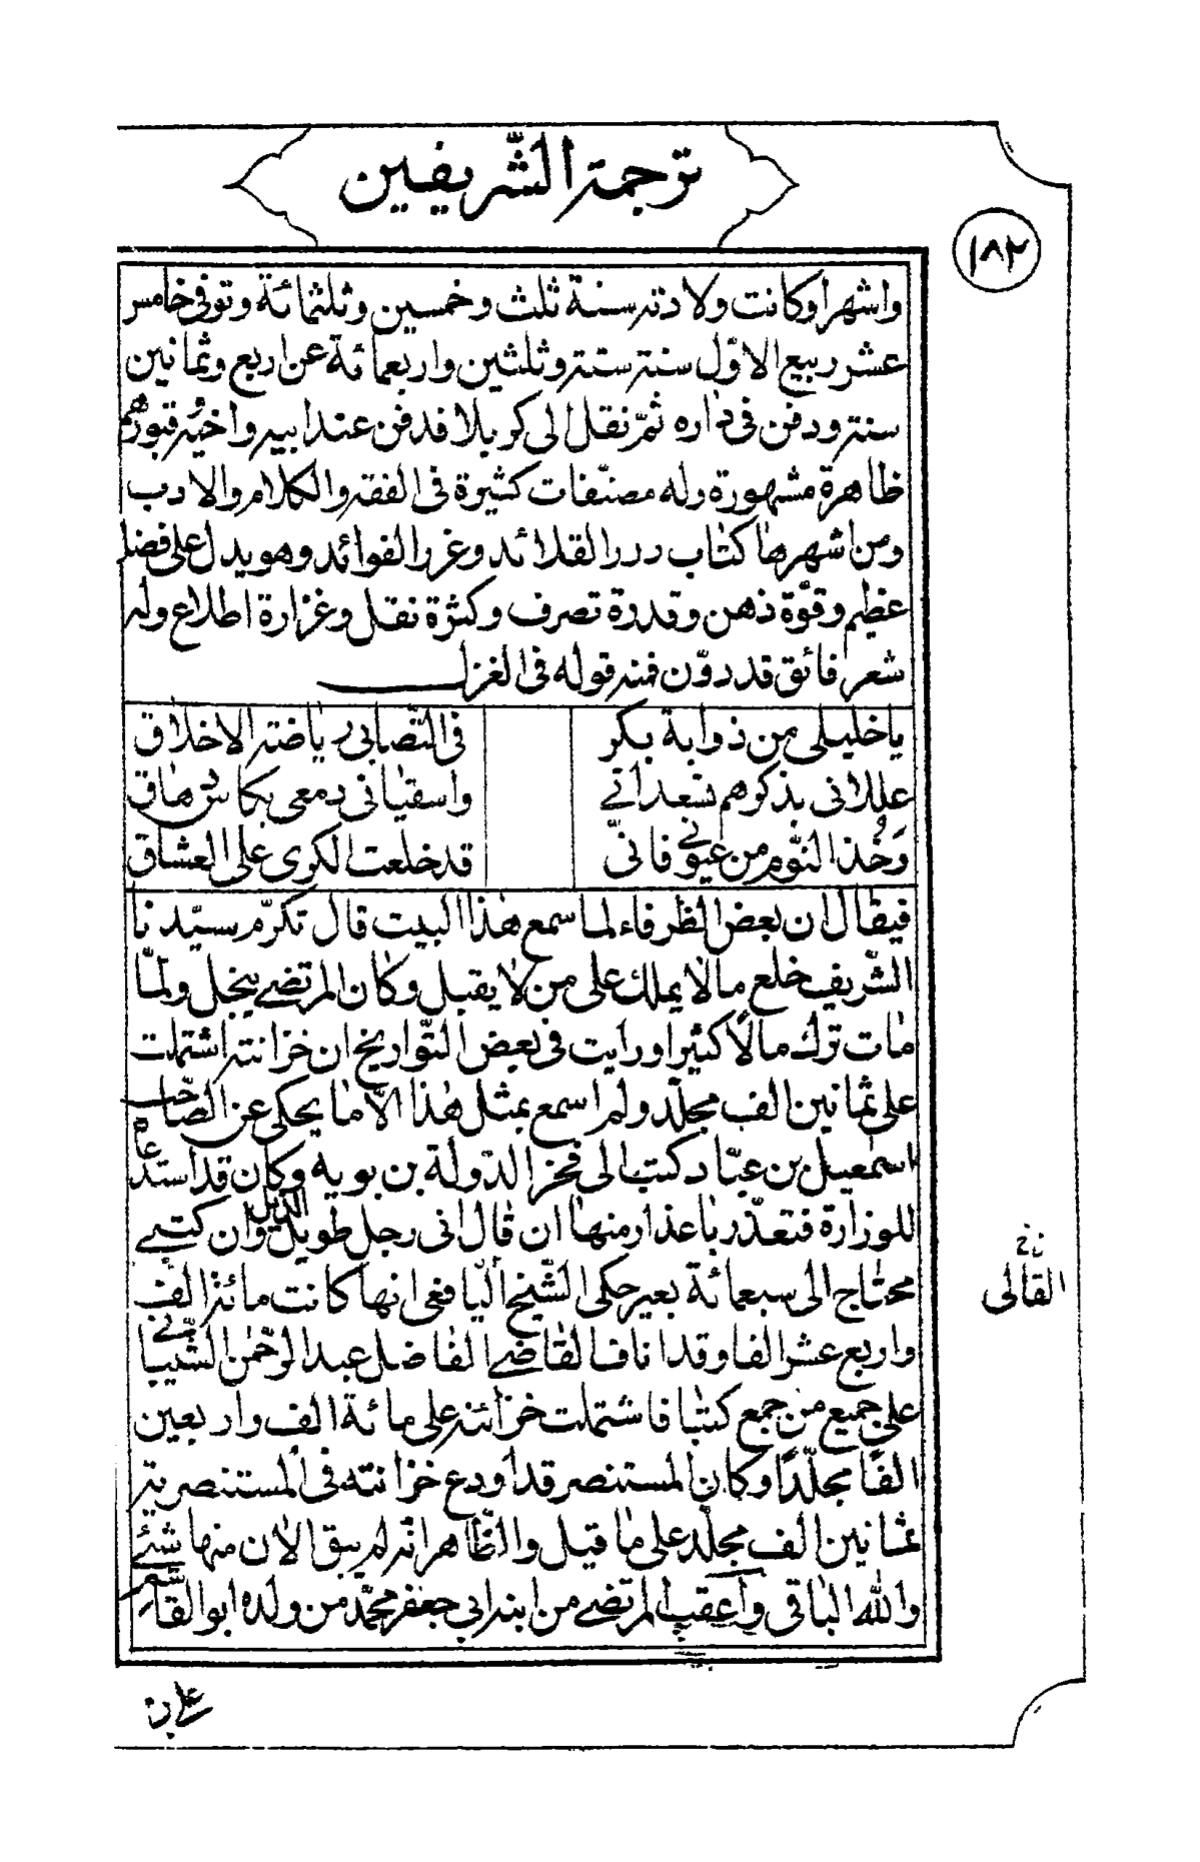 ترجمة الشّريفين
١٨٢
واشهرا وكانت ولادته سنة ثلث وخمسين وثلثمائة وتوفى خامس
عشر ربيع الاوّل سنة ستة وثلثين واربعمائة عن اربع وثمانين
سنة ودفن فى داره ثمّ نقل الى كربلا فدفن عند ابيه واخيه وقبورهم
ظاهرة مشهورة وله مصنّفات كثيرة فى الفقه والكلام والادب
ومن اشهرها كتاب درر القلائد وغرر الفوائد وهو يدل على فضل
عظيم وقوّة ذهن وقدرة تصرف وكثرة نقل وغزارة اطلاع وله
شعر فائق قد دوّن فمنه قوله فى الغزل
ياخليلى من ذوابة بكر فى التّصابى رياضة الاخلاق
عللانى بذكرهم تسعدانے واسقيانى دمعى بكاس دهاق
وَخُذا النّوم من عيونے فانّى قد خلعت الكرى على العشاق
فيقال ان بعض الظرفاء لما سمع هذا البيت قال تكرّم سيّدنا
الشّريف خلع مالا يملك على من لا يقبل وكان المرتضے يبخل ولمّا
مات ترك مالاً كثيرا ورايت فى بعض التّواريخ ان خزانته اشتملت
على ثمانين الف مجلّد ولم اسمع بمثل هذا الّا ما يحكى عن الصّاحب
اسمعيل بن عبّاد كتب الى فخر الدّولة بن بويه وكان قد استدعاه
للوزارة فتعذّر باعذار منها ان قال انى رجل طويل الذيل وان كتبے
محتاج الى سبعمائة بعير حكى الشّيخ اليافعى انها كانت مائة الف
واربع عشر الفا وقد اناف القاضے الفاضل عبد الرّحمن الشّيبانے
على جميع من جمع كتبا فاشتملت خزائنه على مائة الف واربعين
الفًا مجلّدًا وكان المستنصر قد اودع خزانته فى المستنصرية
ثمانين الف مجلّد على ما قيل والظّاهر انّه لم يبق الان منها شئے
والله الباقى واعقب المرتضے من ابنه ابى جعفر محمّد من ولده ابو القاسم
القالى نخ
على بن